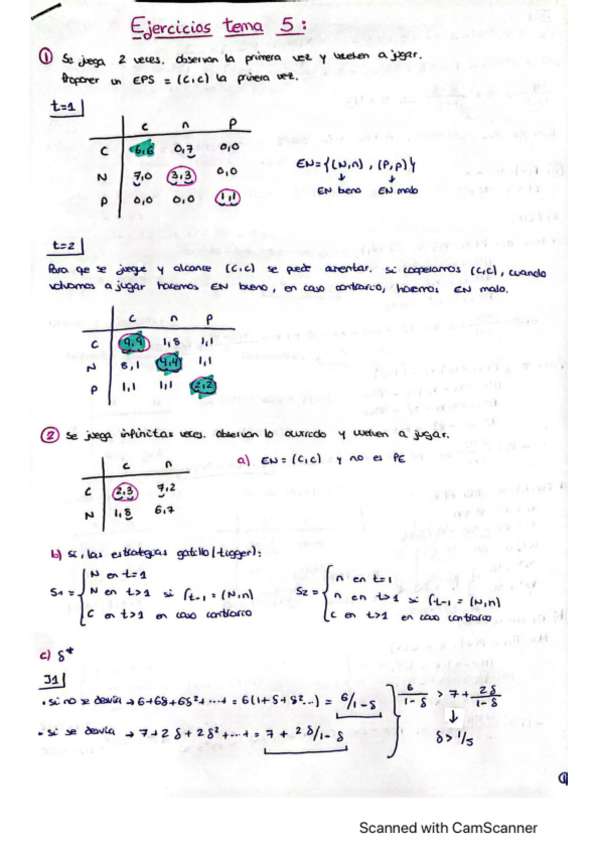 Ejercicios tema 5:
① Se juega 2 veces. observan la primera vez y vuelven a jugar.
Proponer un EPS = (C,C) la primera vez.
t=1
c n p
C 6,6 0,7 0,0
N 7,0 3,3 0,0
P 0,0 0,0 1,1
EN={(N,n), (P,p)}
↓ ↓
EN bueno EN malo
t=2
Para que se juegue y alcance (C,C) se puede aumentar. Si cooperamos (C,C), cuando
volvamos a jugar hacemos EN bueno, en caso contrario, haremos EN malo.
c n p
C 9,9 1,8 1,1
N 8,1 4,4 1,1
P 1,1 1,1 2,2
② Se juega infinitas veces. observan lo ocurrido y vuelven a jugar.
c n
C 2,3 7,2
N 1,8 6,7
a) EN = (C,C) y no es PE
b) Sí, las estrategias gatillo (trigger):
S1 = { N en t=1
N en t>1 si ft-1 = (N,n)
C en t>1 en caso contrario
S2 = { n en t=1
n en t>1 si ft-1 = (N,n)
c en t>1 en caso contrario
c) δ*
J1
• si no se desvía → 6+6δ+6δ²+...+ = 6(1+δ+δ²...) = 6/1-δ
• si se desvía → 7+2δ+2δ²+...+ = 7 + 2δ/1-δ
6/1-δ > 7 + 2δ/1-δ
↓
δ > 1/5
①
Scanned with CamScanner